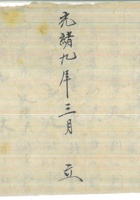 光緒九年三月 立